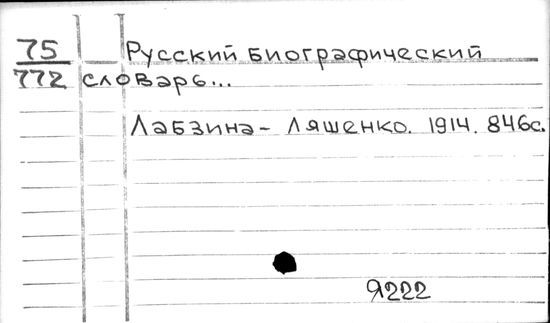 75
772
Русский биографический
словарь...
Лабзина - Ляшенко. 1914. 846с.
Я222